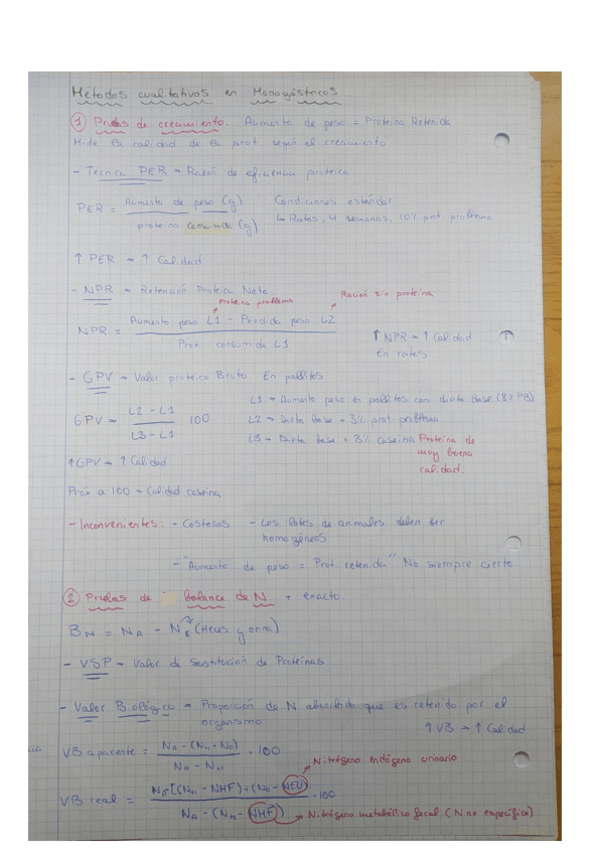 Métodos cualitativos en Monogástricos
① Pruebas de crecimiento. Aumento de peso = Proteina Retenida
Mide la calidad de la prot. según el crecimiento
- Técnica PER → Razón de eficiencia proteica
PER = Aumento de peso (g) / proteina consumida (g)
Condiciones estándar
↳ Ratas, 4 semanas, 10% prot problema
↑ PER → ↑ Calidad
- NPR → Retención Proteica Neta
Proteína problema
Ración sin proteína
NPR = Aumento peso L1 - Perdida peso L2 / Prot consumida L1
↑ NPR → ↑ Calidad
En ratas
- GPV → Valor proteico Bruto En pollitos
GPV = L2 - L1 / L3 - L1 100
L1 → Aumento peso en pollitos con dieta base (8% PB)
L2 → Dieta base + 3% prot problema
L3 → Dieta base + 3% caseína Proteína de
muy buena
calidad.
↑ GPV → ↑ Calidad
Prox a 100 → Calidad caseina
- Inconvenientes: - Costosos - Los lotes de animales deben ser
homogéneos
- "Aumento de peso = Prot. retenida" No siempre cierto.
② Pruebas de balance de N + exacto
BN = NA - NE (Heces y orina)
- VSP → Valor de Sustitución de Proteínas
- Valor Biológico → Proporción de N absorbido que es retenido por el
organismo
↑ VB → ↑ Calidad
VB aparente = NA - (NH + NO) / NA - NH · 100
Nitrógeno endógeno urinario
VB real = NA - [(NH - NHF) + (NO - NEU)] / NA - (NH - NHF) · 100
Nitrógeno metabólico fecal (N no específico)